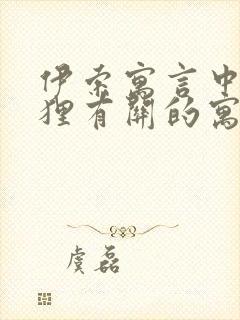 伊索寓言中
狸有關的寓
虞磊